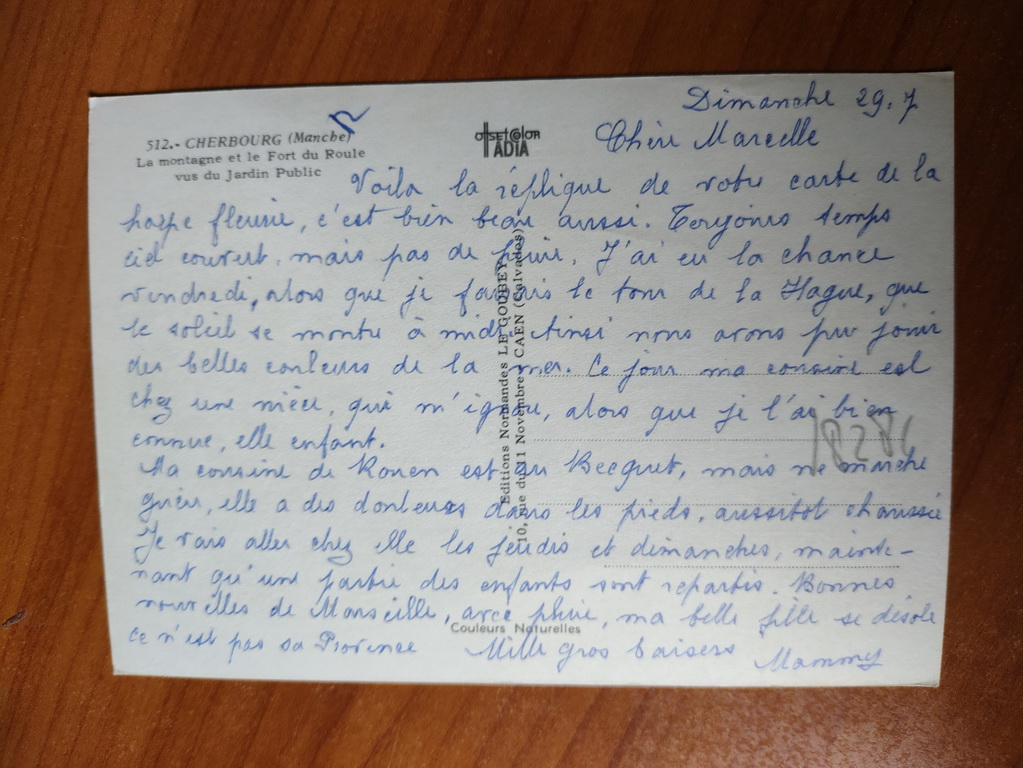 Dimanche 29.7
512.- CHERBOURG (Manche)
La montagne et le Fort du Roule
vus du Jardin Public
OffSETCOLOR
ADIA
Chère Marcelle
Voila la réplique de votre carte de la
harpe fleurie, c'est bien beau aussi. Toujours temps
ciel couvert, mais pas de pluie. J'ai eu la chance
vendredi, alors que je faisais le tour de la Hague, que
le soleil se montre à midi. Ainsi nous avons pu jouir
des belles couleurs de la mer. Ce jour ma cousine est
chez une nièce, qui m'ignore, alors que je l'ai bien
connue, elle enfant.
Ma cousine de Rouen est au Becquet, mais ne marche
guère, elle a des douleurs dans les pieds, aussitot chaussée
Je vais aller chez elle les jeudis et dimanches, mainte-
nant qu'une partie des enfants sont repartis. Bonnes
nouvelles de Marseille, avec pluie, ma belle fille se désole
ce n'est pas sa Provence Mille gros baisers Mammy
Editions Normandes LE GOUBEY
10, rue du 11 Novembre, CAEN (Calvados)
Couleurs Naturelles